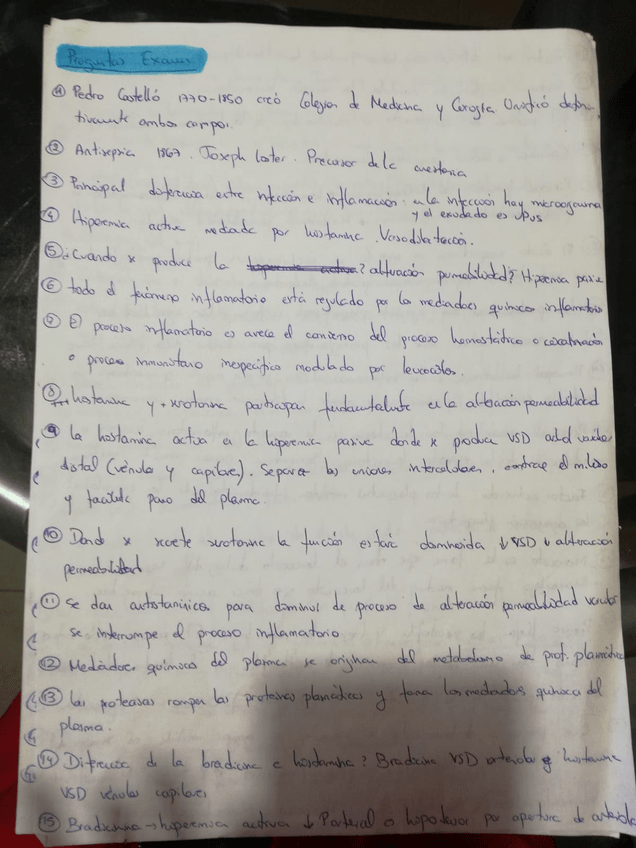 Preguntas Examen
① Pedro Castelló 1770-1850 creó Colegios de Medicina y Cirugía Unificó defini-
tivamente ambos campos.
② Antisepsia 1867. Joseph Lister. Precursor de la anestesia
③ Principal diferencia entre infección e inflamación: en la infección hay microorganismo
y el exudado es pus
④ Hiperemia activa mediada por histamina. Vasodilatación.
⑤ ¿Cuando se produce la hiperemia activa? alteración permeabilidad? Hiperemia pasiva
⑥ todo el fenómeno inflamatorio está regulado por los mediadores químicos inflamatorios
⑦ El proceso inflamatorio es a veces el comienzo del proceso hemostático o coagulación
o proceso inmunitario inespecífico modulado por leucocitos.
⑧ histamina y serotonina participan fundamentalmente en la alteración permeabilidad
⑨ La histamina activa en la hiperemia pasiva donde se produce VSD
distal (vénula y capilares). Separar las uniones intercelulares, contrae el
y facilita paso del plasma.
⑩ Donde se secrete serotonina la función estará disminuida ↓ VSD ↓ alteración
permeabilidad
⑪ Se dan para disminuir de proceso de alteración permeabilidad vascular
se interrumpe el proceso inflamatorio
⑫ Mediadores químicos del plasma se originan del metabolismo de prot. plasmáticas
⑬ Las proteasas rompen las proteínas plasmáticas y forma los mediadores química del
plasma.
⑭ Diferencia de la bradicina e histamina? Bradicina VSD arteriolas e histamina
VSD vénulas capilares
⑮ Bradicinina → hiperemia activa ↓ P arterial o hipotensor por apertura de arteriola